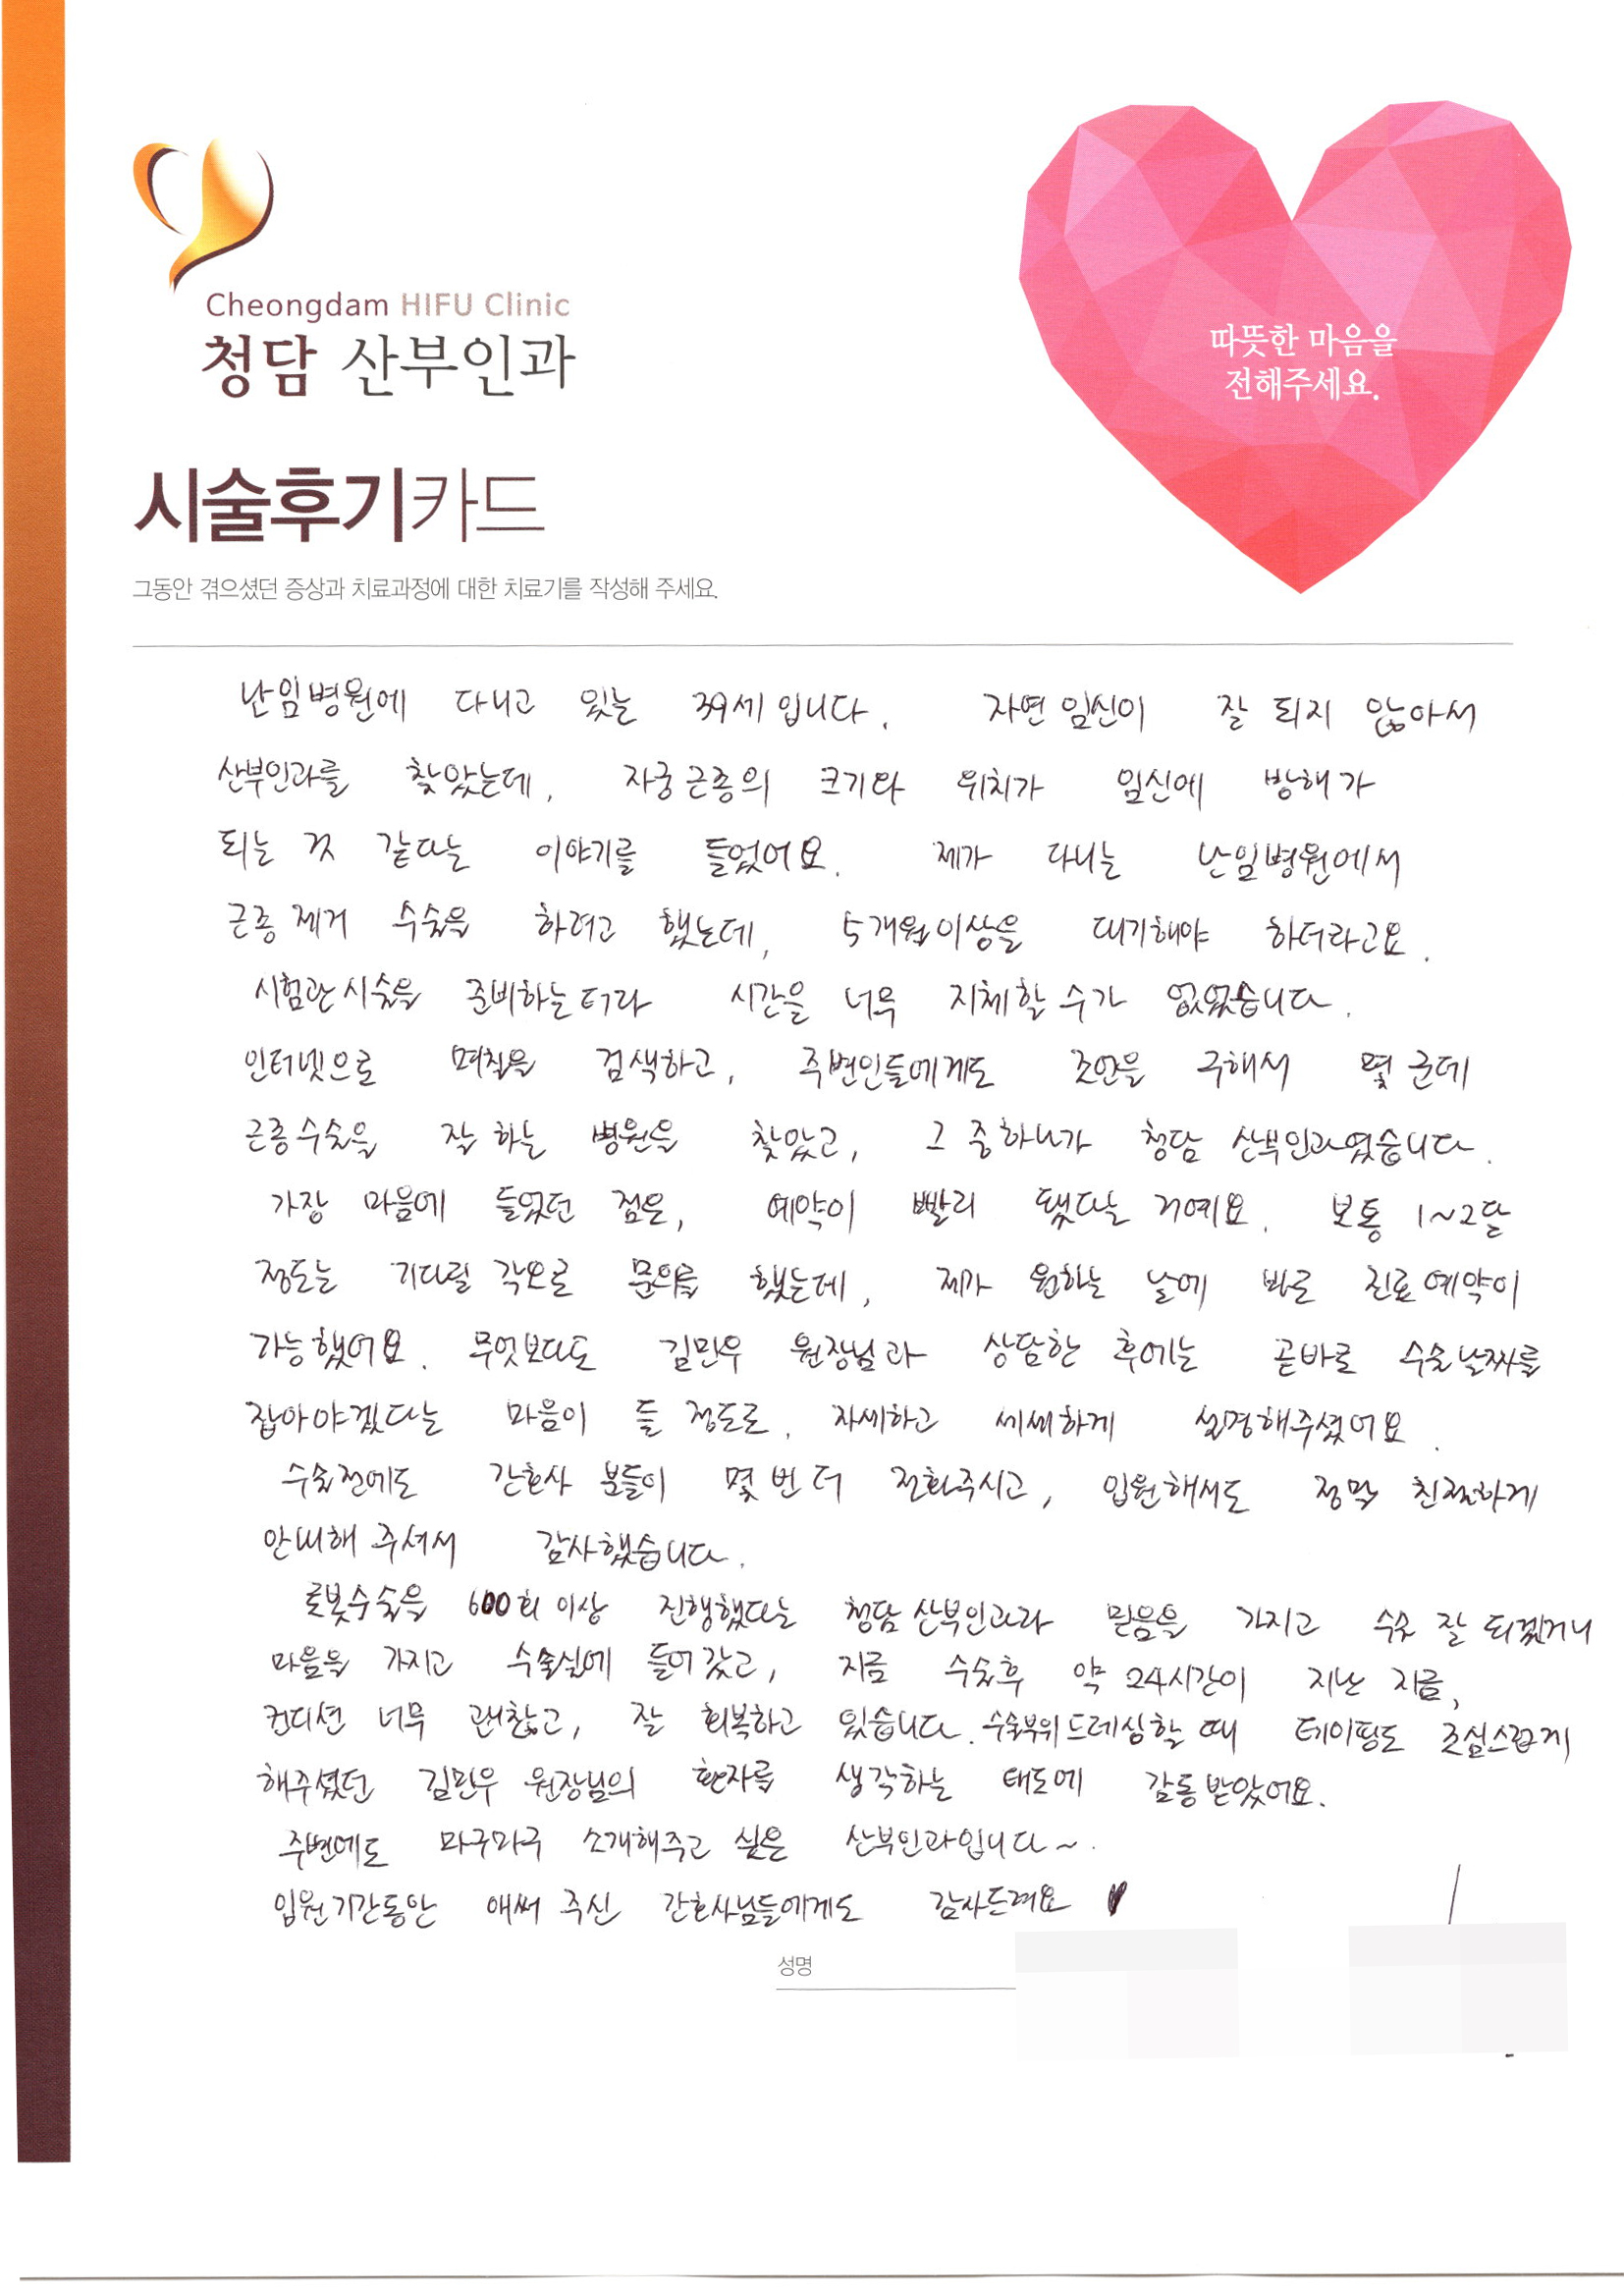 Cheongdam HIFU Clinic
청담 산부인과
따뜻한 마음을
전해주세요.
시술후기카드
그동안 겪으셨던 증상과 치료과정에 대한 치료기를 작성해 주세요.
난임병원에 다니고 있는 39세입니다. 자연임신이 잘 되지 않아서
산부인과를 찾았는데, 자궁근종의 크기와 위치가 임신에 방해가
되는 것 같다는 이야기를 들었어요. 제가 다니는 난임병원에서
근종제거 수술을 하려고 했는데, 5개월이상을 대기해야 하더라고요.
시험관시술을 준비하는터라 시간을 너무 지체할수가 없었습니다.
인터넷으로 며칠을 검색하고, 주변인들에게도 조언을 구해서 몇 군데
근종수술을 잘 하는 병원을 찾았고, 그 중하나가 청담 산부인과였습니다.
가장 마음에 들었던 점은, 예약이 빨리 됐다는 거예요. 보통 1~2달
정도는 기다릴 각오로 문의를 했는데, 제가 원하는 날에 바로 진료예약이
가능했어요. 무엇보다도 김민우 원장님과 상담한 후에는 곧바로 수술날짜를
잡아야겠다는 마음이 들 정도로, 자세하고 세세하게 설명해주셨어요.
수술전에도 간호사 분들이 몇 번 더 전화주시고, 입원해서도 정말 친절하게
안내해 주셔서 감사했습니다.
로봇수술을 600회 이상 진행했다는 청담산부인과라 믿음을 가지고 수술 잘 되겠거니
마음을 가지고 수술실에 들어갔고, 지금 수술후 약 24시간이 지난 지금,
컨디션 너무 괜찮고, 잘 회복하고 있습니다. 수술부위드레싱할 때 테이핑도 조심스럽게
해주셨던 김민우 원장님의 환자를 생각하는 태도에 감동받았어요.
주변에도 마구마구 소개해주고 싶은 산부인과입니다~.
입원기간동안 애써 주신 간호사님들에게도 감사드려요 ♥
성명